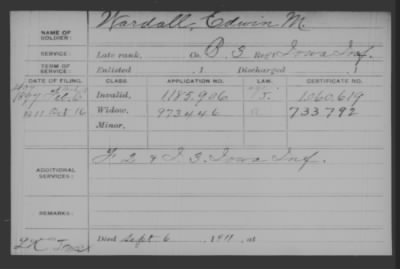 NAME OF SOLDIER: Wardall, Edwin M.
SERVICE: Late rank, Co. B, 3 Reg't Iowa Inf.
TERM OF SERVICE: Enlisted , 1 Discharged , 1
DATE OF FILING. CLASS. APPLICATION NO. LAW. CERTIFICATE NO.
1897 Feb. 6 Invalid, 1185,906 1060,619
1911 Oct 16 Widow, 973446 733792
Minor,
ADDITIONAL SERVICES: F 2 & I 3. Iowa Inf.
REMARKS:
Died Sept 6 , 1911, at